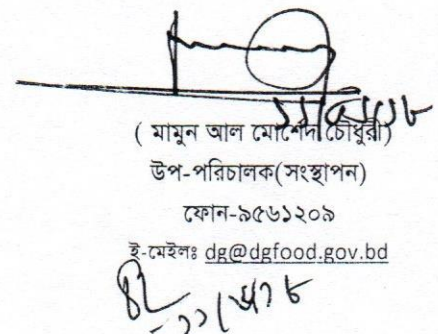 ( মামুন আল মোর্শেদ চৌধুরী)
উপ-পরিচালক(সংস্থাপন)
ফোন-৯৫৬১২০৯
ই-মেইলঃ dg@dgfood.gov.bd